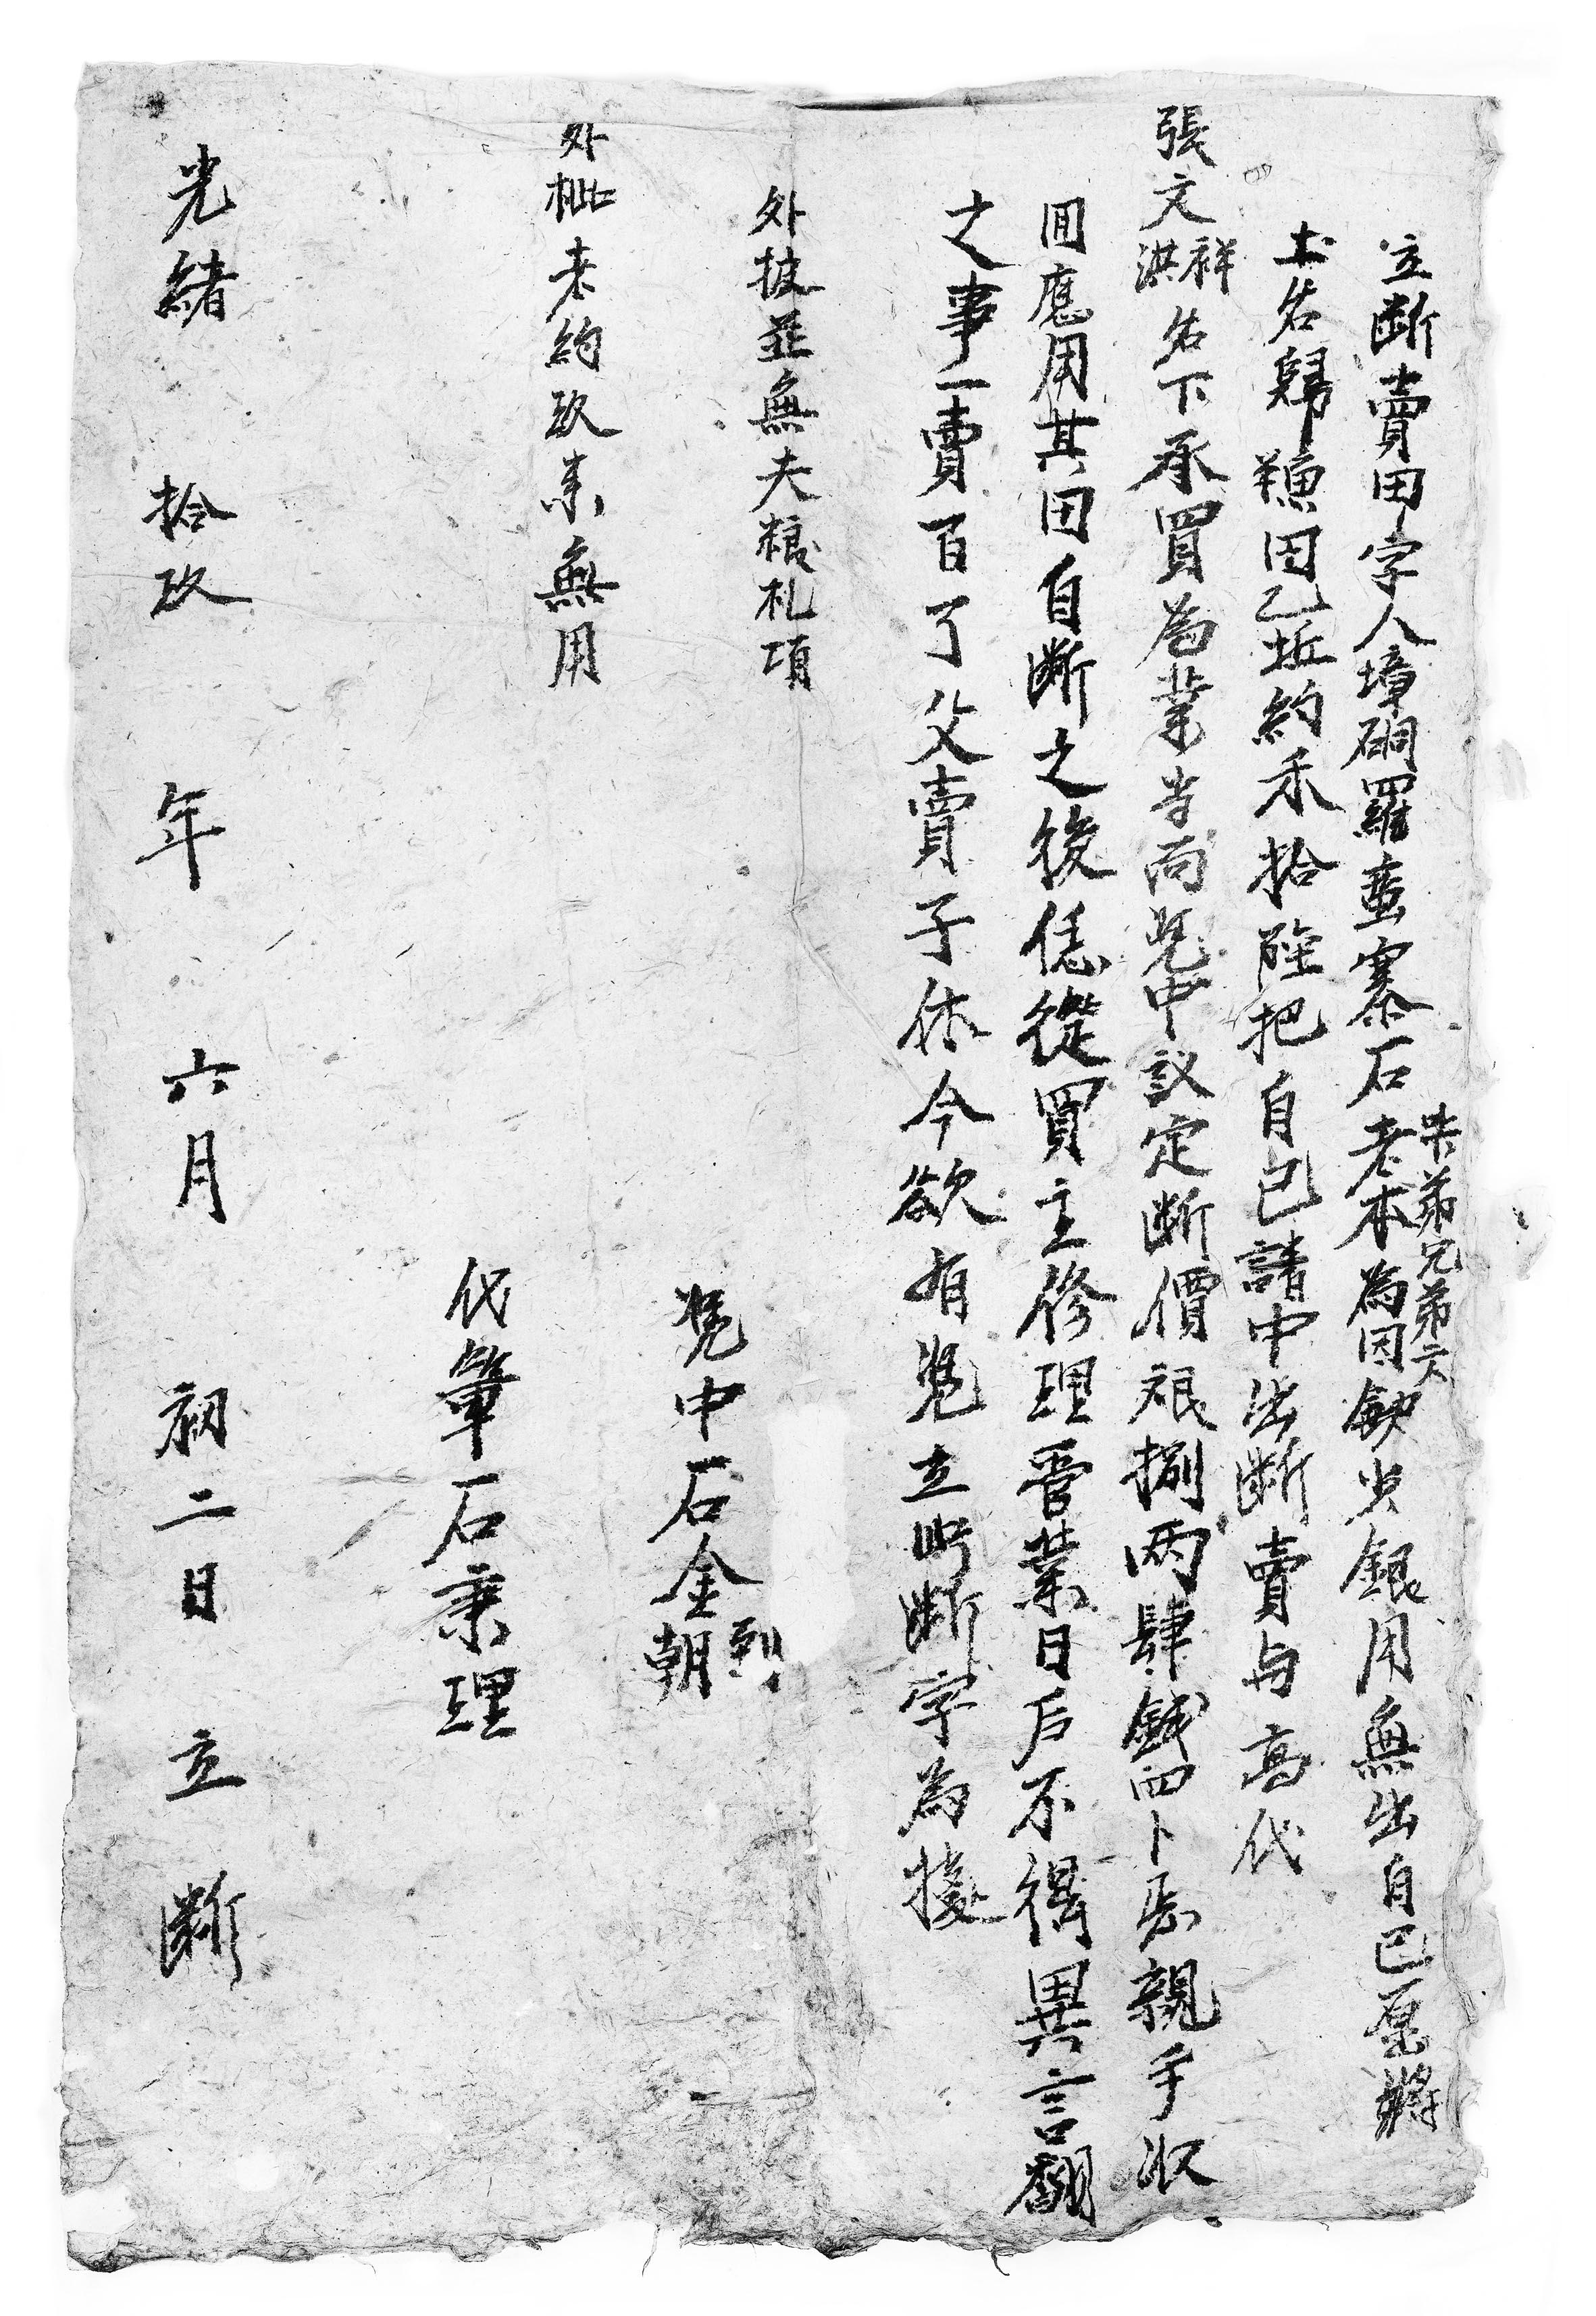 立斷賣田字人墇硐羅蛮寨石老本為因缺少銀用無出自己愿將
弟兄弟二人
土名歸䲣田乙坵約禾拾陸把自己請中出斷賣与高代
張文祥洪名下承買為業当面凴中議定斷價艮捌两肆錢四卜整親手収
囬應用其田自斷之後恁從買主修理管業日后不得異言翻
之事一賣百了父賣子休今欲有凴立此斷字為據
外披並無夫粮札項
外枇老約玖未無用
凴中石金烈朝
代筆石秉理
光緒拾玖年六月初二日立斷